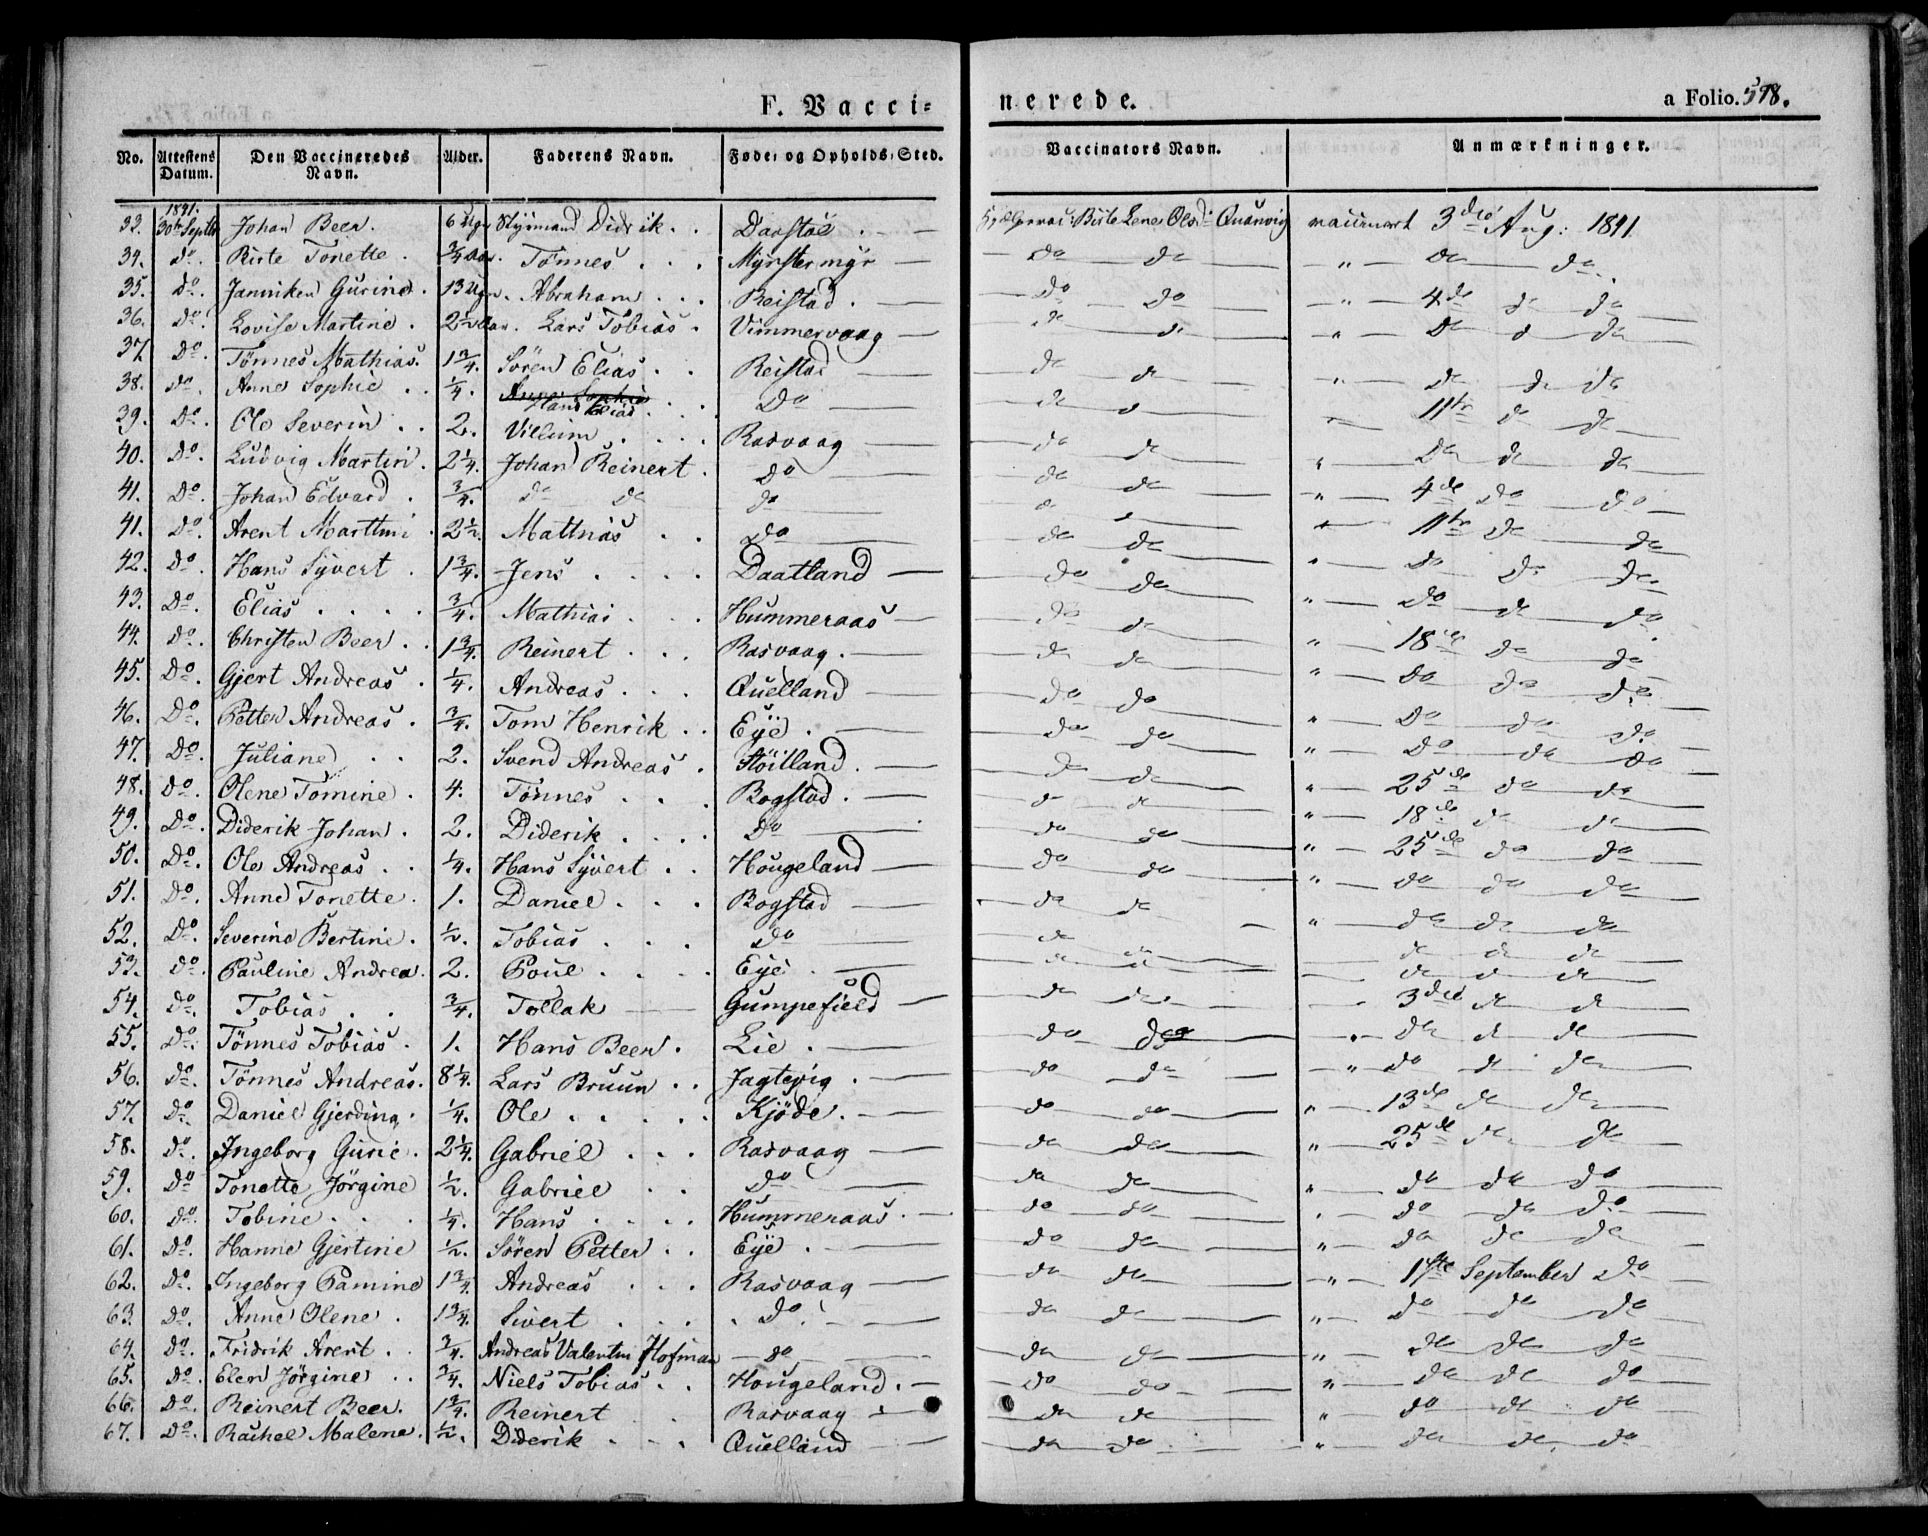 F. Vacci=
nerede.
a Folio. 578.
No. Attestens Datum. Den Vaccineredes Navn. Alder. Faderens Navn. Føde- og Opholds-Sted. Vaccinators Navn. Anmærkninger.
1841.
33. 30te Septbr Johan Beer. 6 Ugr Styrmand Didrik . . Danstøl . — Birte Lene Olsdr Quanvig vaccineret 3die Aug: 1841.
34. Do. Birte Tonette . 3/4 Aar. Tönnes . . . Myrstermyr — Do Do — " — Do — Do.
35. Do. Janniken Gurine . 13 Ugr. Abraham . . . Reistad . — Do Do — " — 4de do do
36. Do. Lovise Martine . 2 1/2 Aar. Lars Tobias . Vimmervaag — do do " — Do do do
37. Do. Tønnes Mathias. 1 3/4. Søren Elias . . Reistad — do do " — Do do do
38. Do. Anne Sophie . . 1/4. Hans Elias . . . Do — do do " — 11te do do
39. Do. Ole Severin . . 2. Villum . . . . Rasvaag — do do " — Do do do
40. Do. Ludvig Martin . 2 1/4. Johan Reinert . Do — do do " — 4de do do
41. Do. Johan Edvard . 3/4. do do do — do do " — 11te do do
41. Do. Arent Marttini . 2 1/2. Mathias . . Do — do do " — do do do
42. Do. Hans Syvert . 1 3/4. Jens . . . . Daatland — do do " — Do do do
43. Do. Elias . . . . 3/4. Mathias . . . Hummeraas — do do " — 18de do do
44. Do. Christen Beer . . 1 3/4. Reinert . . . Rasvaag . — do do " — Do do do
45. Do. Gjert Andreas . 1/4. Andreas . . . Quelland — do do " — Do do do
46. Do. Petter Andreas . 3/4. Tom Henrik . . Eye . — do do " — Do do do
47. Do. Juliane . . 2. Svend Andreas . Støitland . — do do " — 25de do do
48. Do. Olene Tomine . 4. Tønnes . . . Bogstad . — do do " — 18de do do
49. Do. Diderik Johan . 2. Diderik . . . . Do — do do " — 25de do do
50. Do. Ole Andreas . . 1/4. Hans Syvert . . Hougeland — do do " — do do do
51. Do. Anne Tonette . 1. Daniel . . . Bogstad — do do " — do do do
52. Do. Severine Bertine . 1/2. Tobias . . . Do — do do — do do do
53. Do. Pauline Andrea . 2. Poul . . . . Eye . — do do — do do do
54. Do. Tobias . . 3/4. Tollak — Gumpefield — do do — 3die do do
55. Do. Tönnes Tobias . 1. Hans Beer . Lie . — do do " — do do do
56. Do. Tönnes Andreas. 8 1/4. Lars Bruun . . Jagtevig . — do do " — do do do
57. Do. Daniel Gjerding . 1/4. Ole . . . . . Kjöde . — do do " — 13de do do
58. Do. Ingeborg Gurie . 2 1/4. Gabriel . . . Rasvaag — do do " — 25de do do
59. Do Tonette Jörgine 1/2. Gabriel . . Do — do do " — do do do
60. Do. Tobine . . . 1/4. Hans . . . . Hummeraas . — do do " — do do do
61. Do. Hanne Gjertine 1/2. Sören Petter . . Eye . — do do " — do do do
62. Do. Ingeborg Pamine 1 3/4. Andreas . . . Rasvaag — do do " — 1ste September do
63. Do. Anne Olene . 1 3/4. Sivert . . . . Do. — do do " — do do do
64. Do. Fridrik Arent . . 3/4. Andreas Valentin Hofman — do — do do " — do do do
65. Do. Elen Jörgine . . 3/4. Niels Tobias . . Hougeland . — do do " — do do do
66. Do. Reinert Beer. 1 3/4. Reinert . Rasvaag — do do " — do do do
67. Do. Rachel Malene . 1/2. Diderik . . . Quelland — do do " — do do do